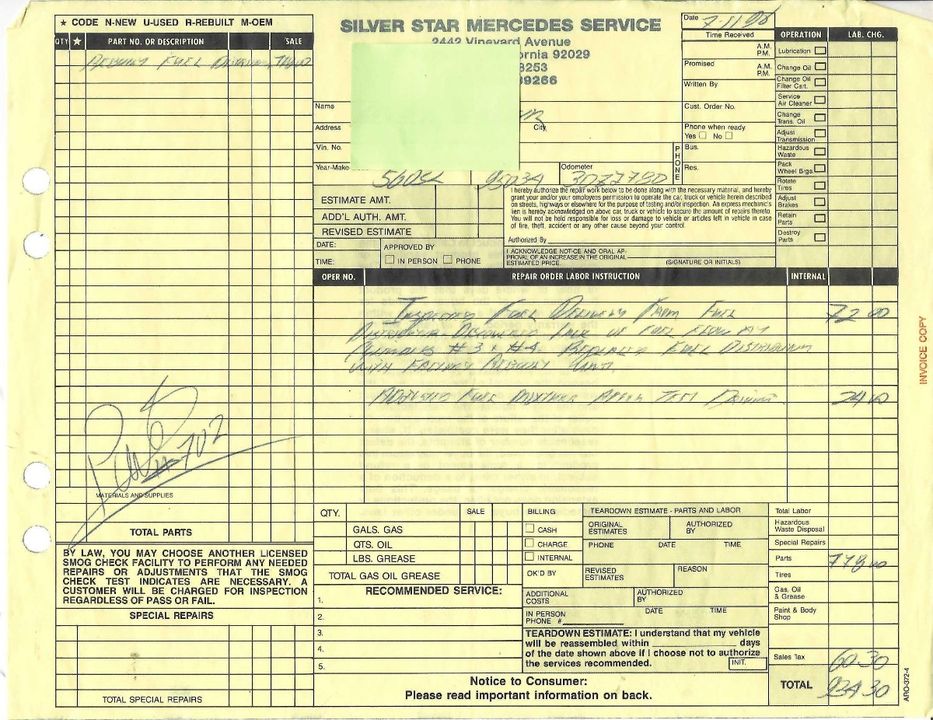 ★ CODE N-NEW U-USED R-REBUILT M-OEM
QTY ★ PART NO. OR DESCRIPTION SALE
Fuel
MATERIALS AND SUPPLIES
Paid #702
TOTAL PARTS
BY LAW, YOU MAY CHOOSE ANOTHER LICENSED
SMOG CHECK FACILITY TO PERFORM ANY NEEDED
REPAIRS OR ADJUSTMENTS THAT THE SMOG
CHECK TEST INDICATES ARE NECESSARY. A
CUSTOMER WILL BE CHARGED FOR INSPECTION
REGARDLESS OF PASS OR FAIL.
SPECIAL REPAIRS
TOTAL SPECIAL REPAIRS
SILVER STAR MERCEDES SERVICE
2442 Vineyard Avenue
ornia 92029
8253
39266
Name
Address City
Vin. No.
Year-Make Odometer
560SL
ESTIMATE AMT.
ADD'L AUTH. AMT.
REVISED ESTIMATE
DATE: APPROVED BY
TIME: IN PERSON PHONE
Date
Time Received
A.M.
P.M.
Promised A.M.
P.M.
Written By
Cust. Order No.
Phone when ready
Yes No
PHONE
Bus.
Res.
I hereby authorize the repair work below to be done along with the necessary material, and hereby
grant your and/or your employees permission to operate the car, truck or vehicle herein described
on streets, highways or elsewhere for the purpose of testing and/or inspection. An express mechanic's
lien is hereby acknowledged on above car, truck or vehicle to secure the amount of repairs thereto.
You will not be held responsible for loss or damage to vehicle or articles left in vehicle in case
of fire, theft, accident or any other cause beyond your control.
Authorized By
I ACKNOWLEDGE NOTICE AND ORAL AP-
PROVAL OF AN INCREASE IN THE ORIGINAL
ESTIMATED PRICE. (SIGNATURE OR INITIALS)
OPERATION LAB. CHG.
Lubrication
Change Oil
Change Oil
Filter Cart.
Service
Air Cleaner
Change
Trans. Oil
Adjust
Transmission
Hazardous
Waste
Pack
Wheel Brgs.
Rotate
Tires
Adjust
Brakes
Retain
Parts
Destroy
Parts
OPER NO. REPAIR ORDER LABOR INSTRUCTION INTERNAL
Inspected Fuel Delivery From Fuel 72 00
Distributor Discovered Lack of Fuel Flow By
Cylinders #3 & #4. Replaced Fuel Distributor
With Factory Rebuilt Unit.
Adjusted Fuel Mixture After Test Driving. 24 00
QTY. SALE
GALS. GAS
QTS. OIL
LBS. GREASE
TOTAL GAS OIL GREASE
BILLING
CASH
CHARGE
INTERNAL
OK'D BY
TEARDOWN ESTIMATE - PARTS AND LABOR
ORIGINAL
ESTIMATES AUTHORIZED
BY
PHONE DATE TIME
REVISED
ESTIMATES REASON
ADDITIONAL
COSTS AUTHORIZED
BY
IN PERSON DATE TIME
PHONE #
RECOMMENDED SERVICE:
1.
2.
3.
4.
5.
TEARDOWN ESTIMATE: I understand that my vehicle
will be reassembled within days
of the date shown above if I choose not to authorize
the services recommended. INIT.
Notice to Consumer:
Please read important information on back.
Total Labor
Hazardous
Waste Disposal
Special Repairs
Parts 778 00
Tires
Gas, Oil
& Grease
Paint & Body
Shop
Sales Tax 60.30
TOTAL 934 30
INVOICE COPY
ARO-372-4